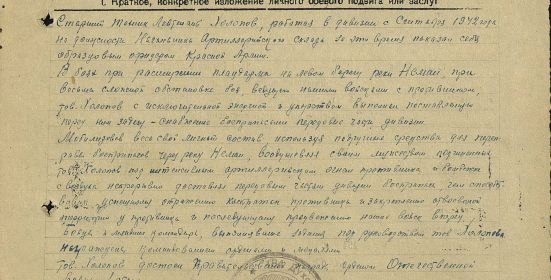 I. Краткое, конкретное изложение личного боевого подвига или заслуг
Старший техник лейтенант Холопов, работая в дивизии с Сентября 1942 года
на должности Начальника Артиллерийского Склада за это время показал себя
образцовым офицером Красной Армии.
В боях при расширении плацдарма на левом берегу реки Неман, при
весьма сложной обстановке боя, ведущего нашими войсками с противником,
тов. Холопов с исключительной энергией и упорством выполнял поставленную
перед ним задачу - снабжение боеприпасами передовые части дивизии.
Мобилизовав весь свой личный состав, используя подручные средства для переп-
равы боеприпасов через реку Неман, воодушевляя своим мужеством подчиненных
тов. Холопов под интенсивным артиллерийским огнем противника и бомбежки
с воздуха непрерывно доставлял передовым частям дивизии боеприпасы, чем способст-
вовал успешному отражению контратак противника и закреплению отвоеванной
территории у противника и последующему продвижению наших войск вперед.
Бойцы и младшие командиры, выполнявшие задания под руководством тов. Холопова
награждены командованием орденами и медалями.
Тов. Холопов достоин Правительственной награды, орденом Отечественной